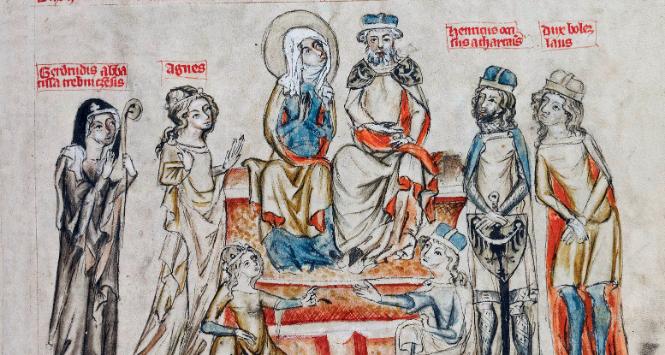 Gerdrudis abba
tissa trebniczēsis
agnes
Henricus occi
sus a thartaris
dux bolez
laus